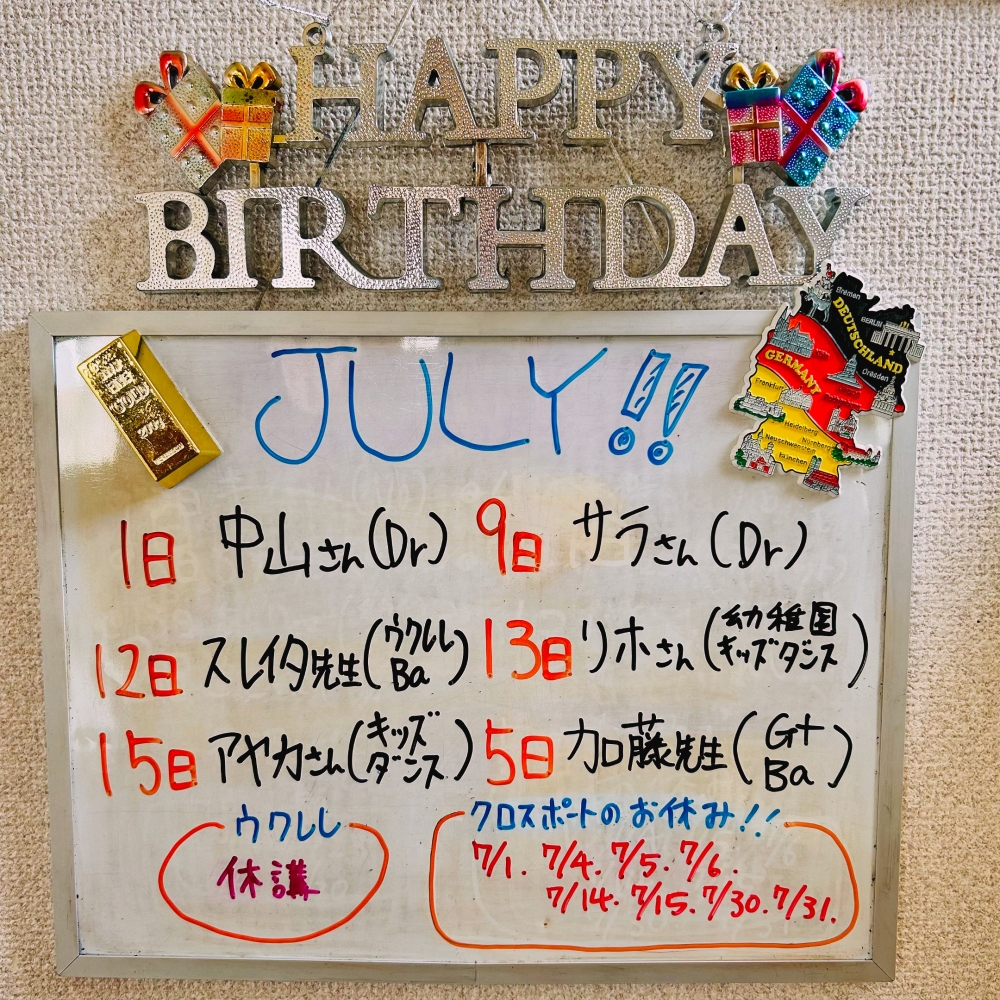 HAPPY
BIRTHDAY
JULY!!
Bremen
DEUTSCHLAND
BERLIN
GERMANY
Dresden
Frankfurt
Heidelberg
Nürnberg
Neuschwanstein
München
1日 中山さん(Dr) 9日 サラさん(Dr)
12日 スレイタ先生(ウクレレ Ba) 13日 リホさん(幼稚園 キッズダンス)
15日 アヤカさん(キッズ ダンス) 5日 加藤先生(Gt Ba)
ウクレレ
休講
クロスポートのお休み!!
7/1. 7/4. 7/5. 7/6.
7/14. 7/15. 7/30. 7/31.